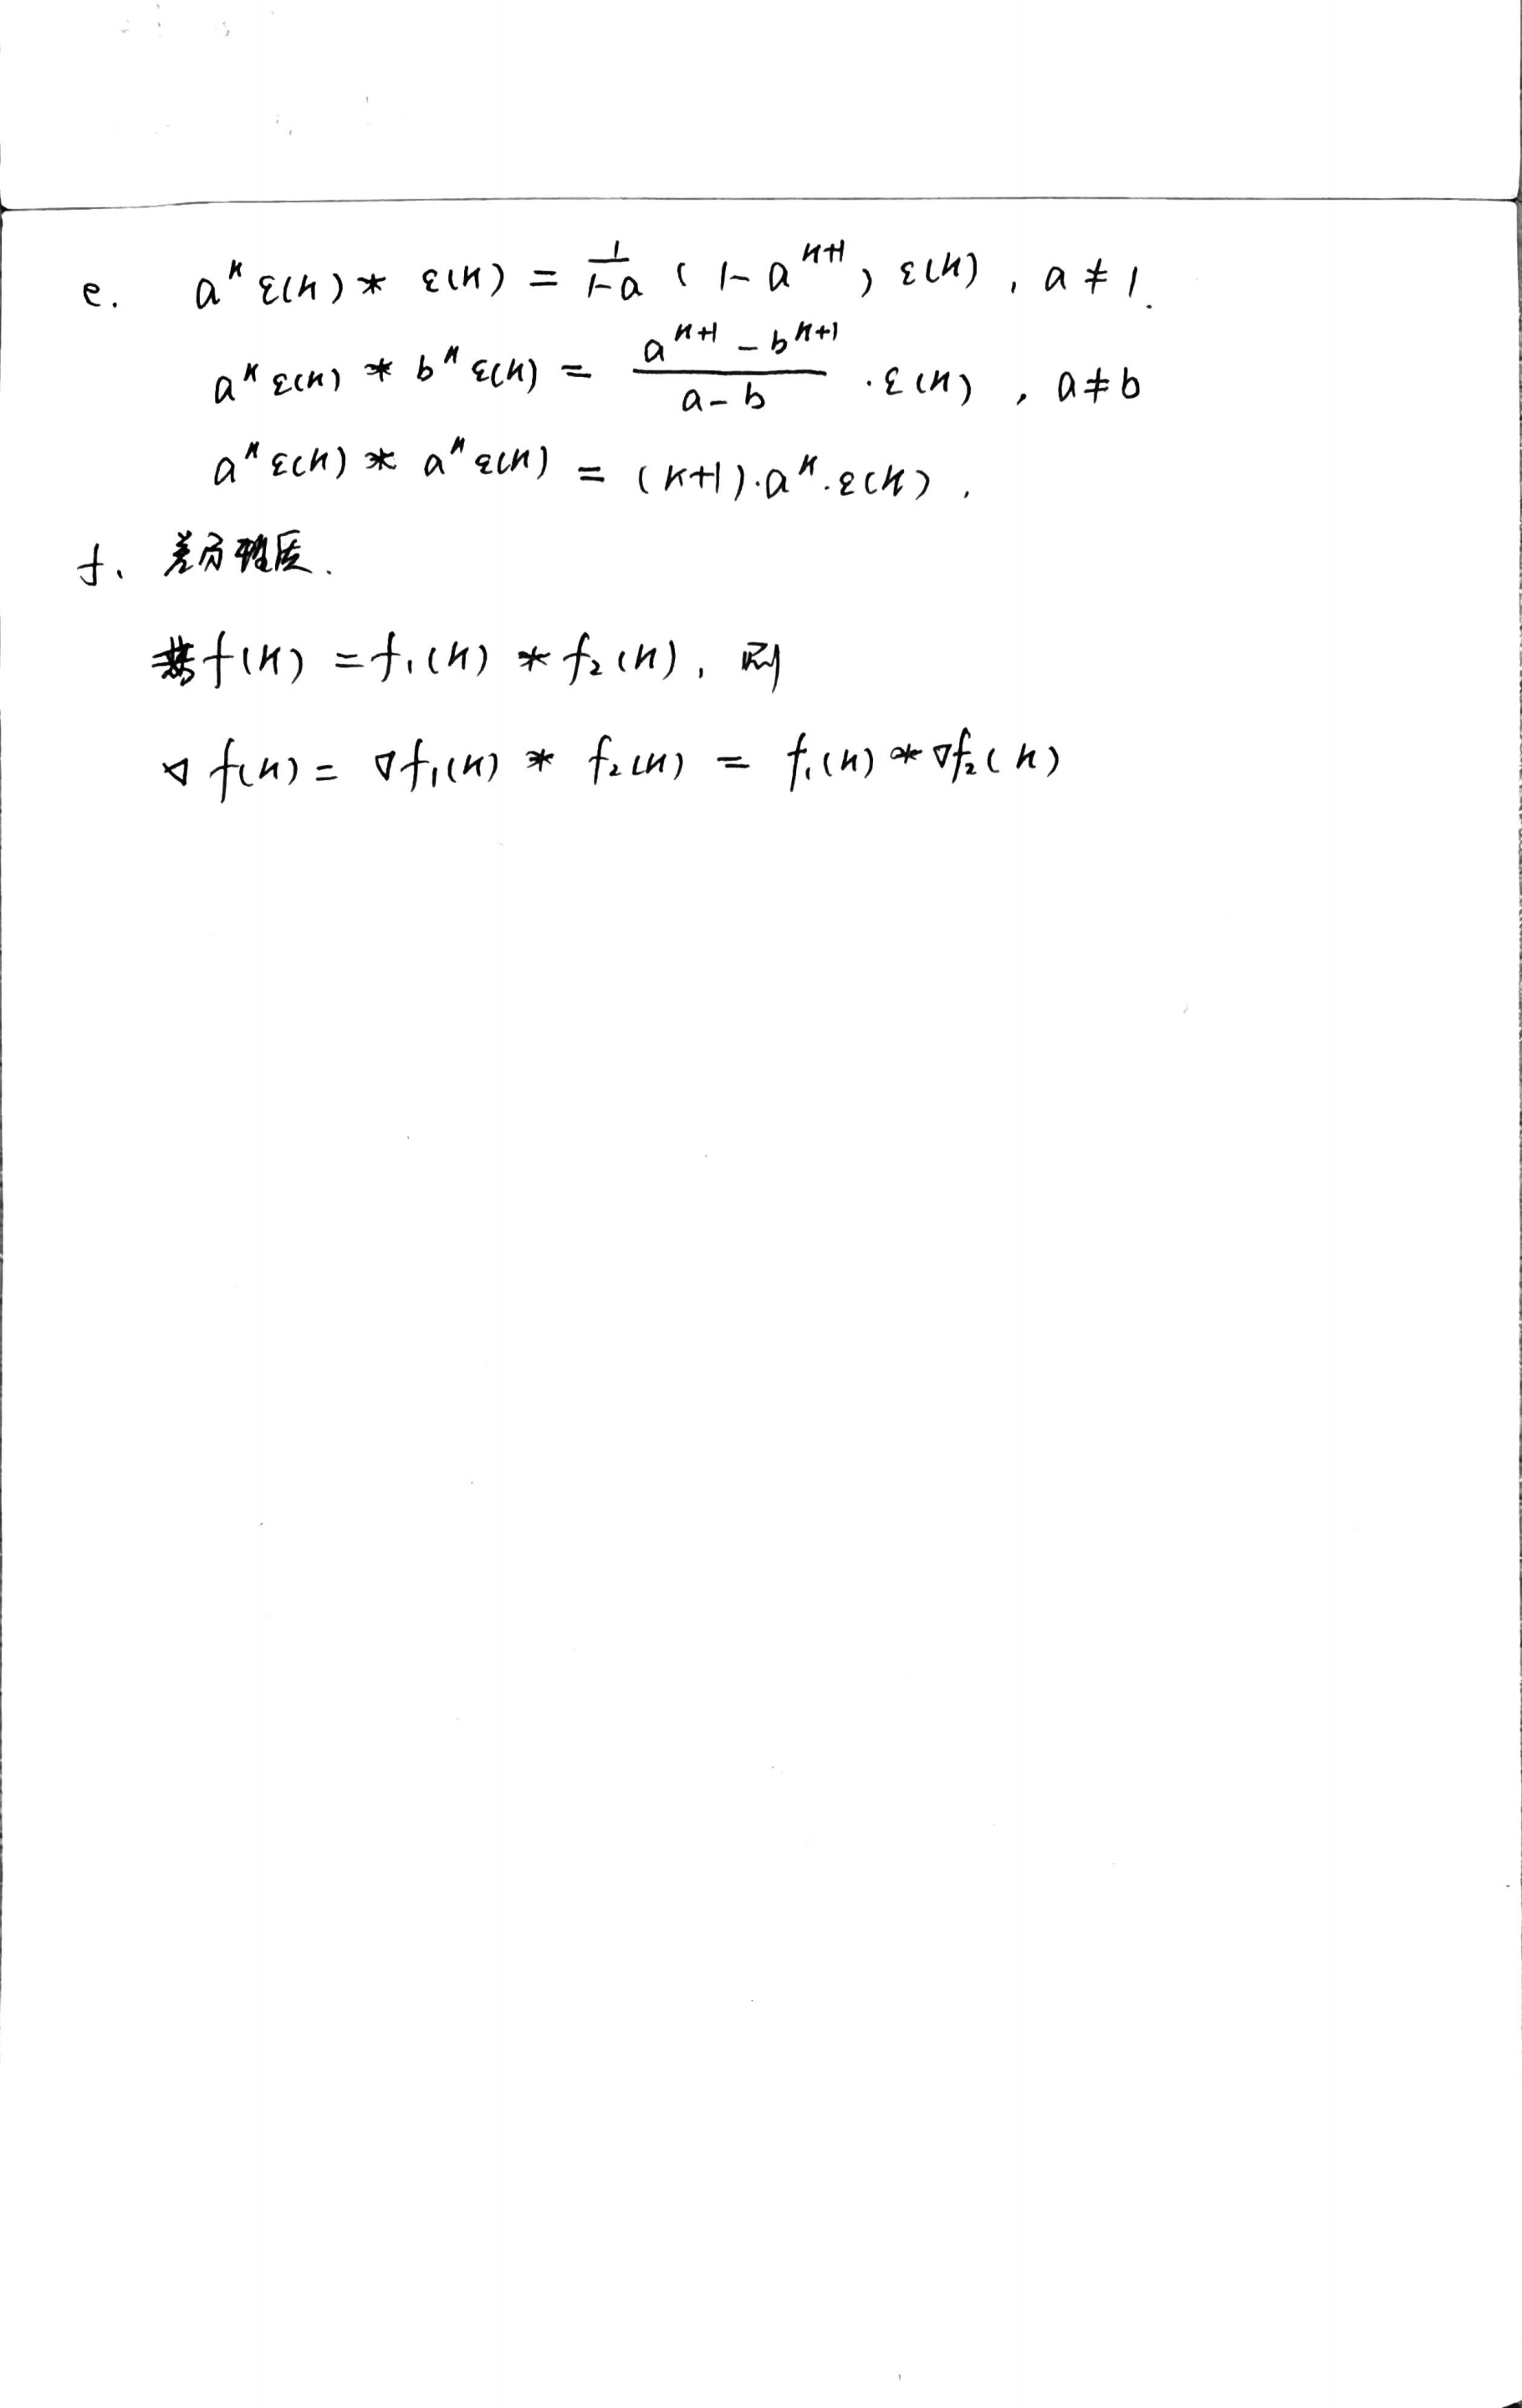 e. aᵏε(k) * ε(k) = 1/(1-a) (1-aᵏ⁺¹) ε(k), a ≠ 1.
aᵏε(k) * bᵏε(k) = (aᵏ⁺¹ - bᵏ⁺¹)/(a-b) · ε(k), a≠b
aᵏε(k) * aᵏε(k) = (k+1)·aᵏ·ε(k).
f. 差分性质.
若f(k) = f₁(k) * f₂(k), 则
∇f(k) = ∇f₁(k) * f₂(k) = f₁(k) * ∇f₂(k)